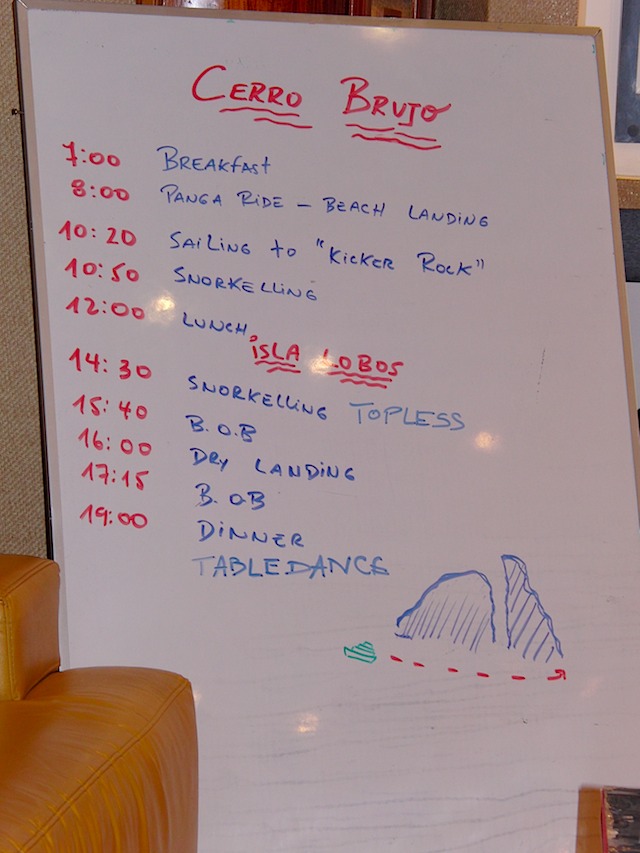 CERRO BRUJO
7:00 BREAKfAST
8:00 PANGA RIDE – BEACH LANDING
10:20 SAILING to "KICKER ROCK"
10:50 SNORKELLING
12:00 LUNCH
ISLA LOBOS
14:30 SNORKELLING TOPLESS
15:40 B.O.B
16:00 DRY LANDING
17:15 B.OB
19:00 DINNER
TABLEDANCE